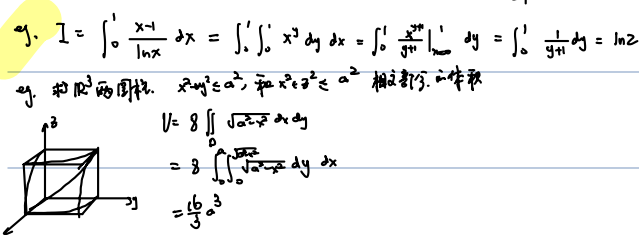 eg. I = ∫₀¹ (x-1)/(ln x) dx = ∫₀¹ ∫₀¹ x^y dy dx = ∫₀¹ x^(y+1)/(y+1) |ₓ₌₀¹ dy = ∫₀¹ 1/(y+1) dy = ln2
eg. 求 ℝ³ 两圆柱 x²+y² ≤ a², 和 x²+z² ≤ a² 相交部分的体积
V = 8 ∬_D √(a²-x²) dx dy
= 8 ∫₀^a ∫₀^√(a²-x²) √(a²-x²) dy dx
= 16/3 a³
z
y